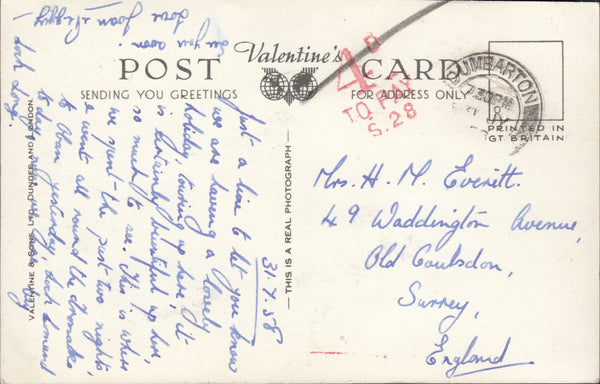 Valentine's
POST CARD
SENDING YOU GREETINGS
FOR ADDRESS ONLY
PRINTED IN
GT BRITAIN
DUMBARTON
7.30PM
4D
TO PAY
S.28
VALENTINE & SONS, LTD., DUNDEE AND LONDON.
THIS IS A REAL PHOTOGRAPH
31.7.58
Just a line to let you know
we are having a lovely
holiday touring up here, it
is certainly beautiful up here,
so much to see. This is where
we spent the past two nights,
& went all round the
to Oban yesterday, Loch Lomond
to-day
Loch Long.
See you soon.
Love Joan
Mrs. H. M. Everitt.
49 Waddington Avenue,
Old Coulsdon,
Surrey,
England.